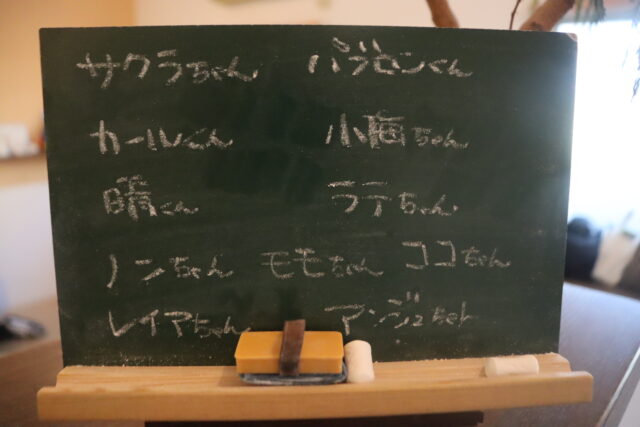 サクラちゃん パブロンくん
カールくん 小梅ちゃん
晴くん ラテちゃん
ノンちゃん モモちゃん ココちゃん
レイアちゃん アンジュちゃん